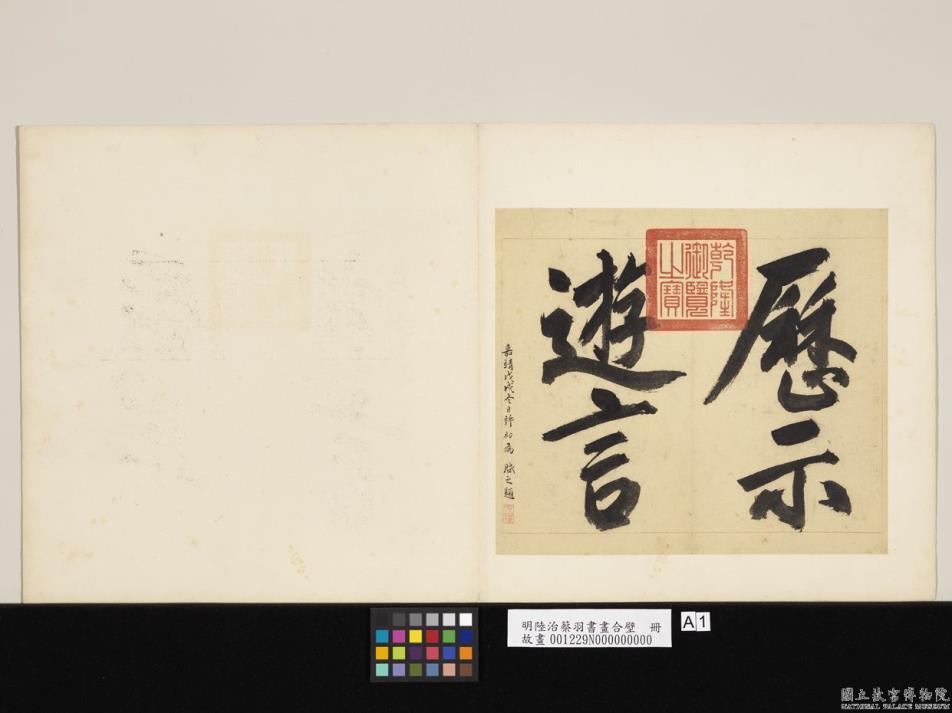 歷示
遊言
乾隆
御覽
之寶
嘉靖戊戌冬日許初為
陂之題
明陸治蔡羽書畫合壁　冊
故畫 001229N000000000
A1
國立故宮博物院
NATIONAL PALACE MUSEUM